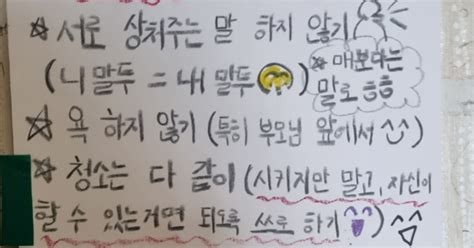 ☆ 서로 상처주는 말 하지 않기
(니 말투 = 내 말투) ※ 매분다는 말로 ㅎㅎ
☆ 욕 하지 않기 (특히 부모님 앞에서 ^^)
☆ 청소는 다 같이 (시키지만 말고, 자신이
할 수 있는거면 되도록 쓰로 하기)